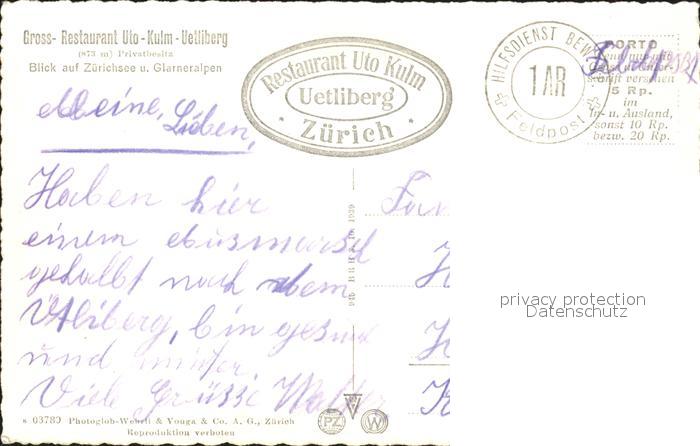 Gross- Restaurant Uto-Kulm-Uetliberg
(873 m) Privatbesitz
Blick auf Zürichsee u. Glarneralpen
Restaurant Uto Kulm
Uetliberg
Zürich
HILFSDIENST BEW
1 AR
Feldpost
PORTO
versehen
5 Rp.
im
In- u. Ausland,
sonst 10 Rp.
bezw. 20 Rp.
Meine Lieben,
Haben hier
einem Ausmarsch
gehabt nach dem
Ütliberg, bin gesund
und munter.
Viele Grüsse Walter
Fam
privacy protection
Datenschutz
03780 Photoglob-Wehrli & Vouga & Co. A. G., Zürich
Reproduktion verboten
PZ
W